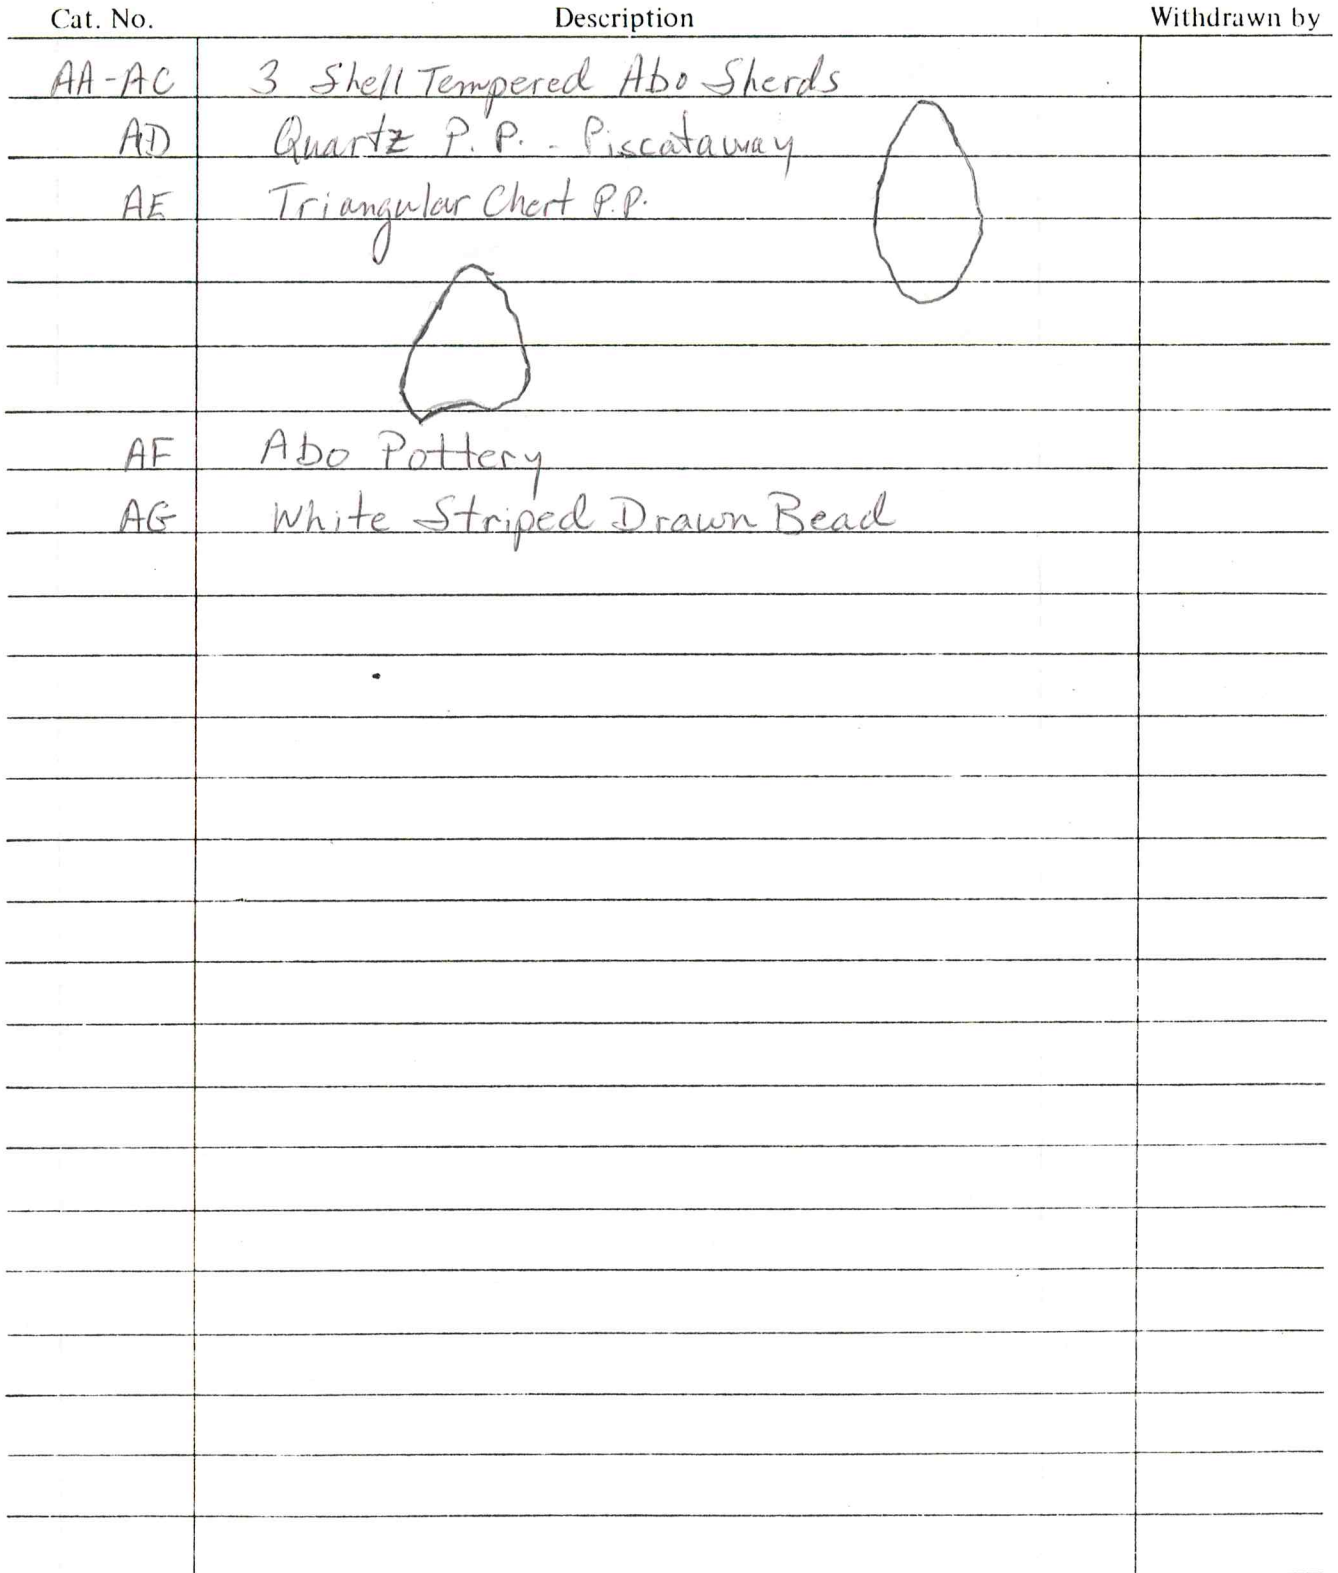 Cat. No. Description Withdrawn by
AA-AC 3 Shell Tempered Abo Sherds
AD Quartz P.P. - Piscataway
AE Triangular Chert P.P.
AF Abo Pottery
AG White Striped Drawn Bead